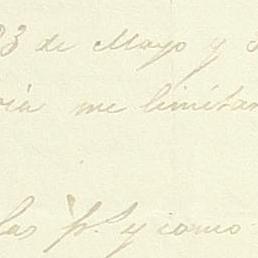 23 de Mayo y
me limitar
las pr. y como